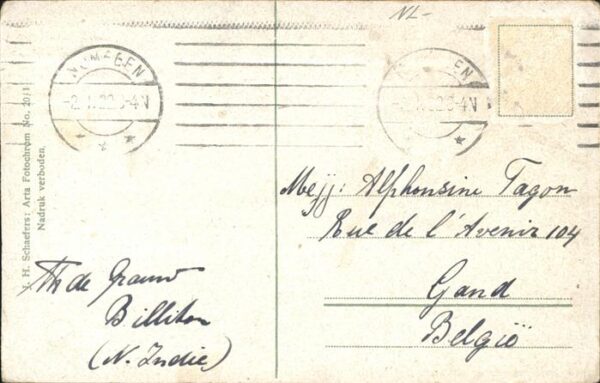 NL-
NIJMEGEN
J. H. Schaefers: Arta Fotochrom No. 20/1
Nadruk verboden.
Mejj: Alphonsine Tagon
Rue de l'Avenir 104
Gand
België
Th de Graauw
Billiton
(N. Indie)